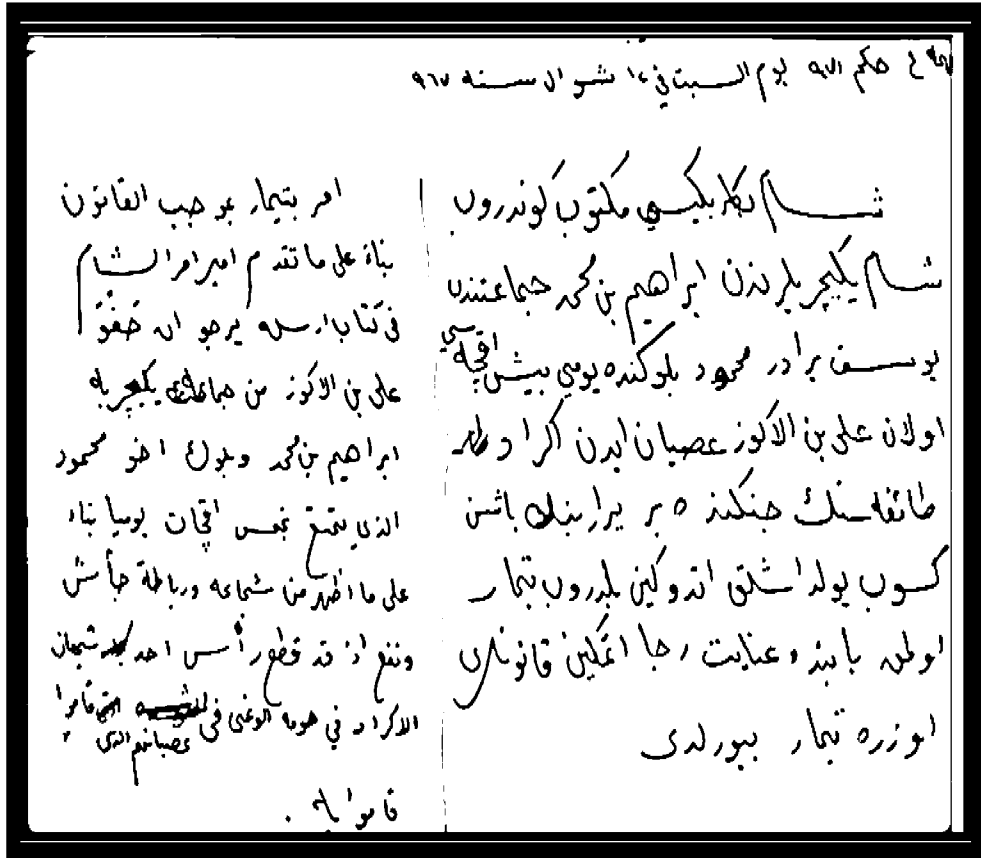 حكم ٩٧١ يوم السبت في ١٤ شوال سنة ٩٦٧
شام بكلربكيسي مكتوب كوندروب
شام يكيچريلرندن ابراهيم بن محمد جماعتندن
يوسف برادر محمود بلوكنده يومي بيش اقچه سي
اولان علي بن الاكوز عصيان ايدن اكراد
طائفه سنك جنكنده بر يرارينك باشن
كسوب يولداشلق اتدوكين بلدروب تيمار
بابنده عنايت رجا اتمكين قانونلري
اوزره تيمار بيورلدى
امر بتيمار بموجب القانون
بناء على ما تقدم امير امراء الشام
في كتاب ارسله يرجو ان
علي بن الاكوز من جماعة يكيچرية
ابراهيم بن محمد وبلوك اخو محمود
الذي يتمتع بخمس اقچات يوميا بناء
على ما اظهر من شجاعه ورباطة جأش
ونفع اذ قد قطع رأس احد شجعان
الاكراد في حومة الوغى في عصيانهم الذي
قاموا به .